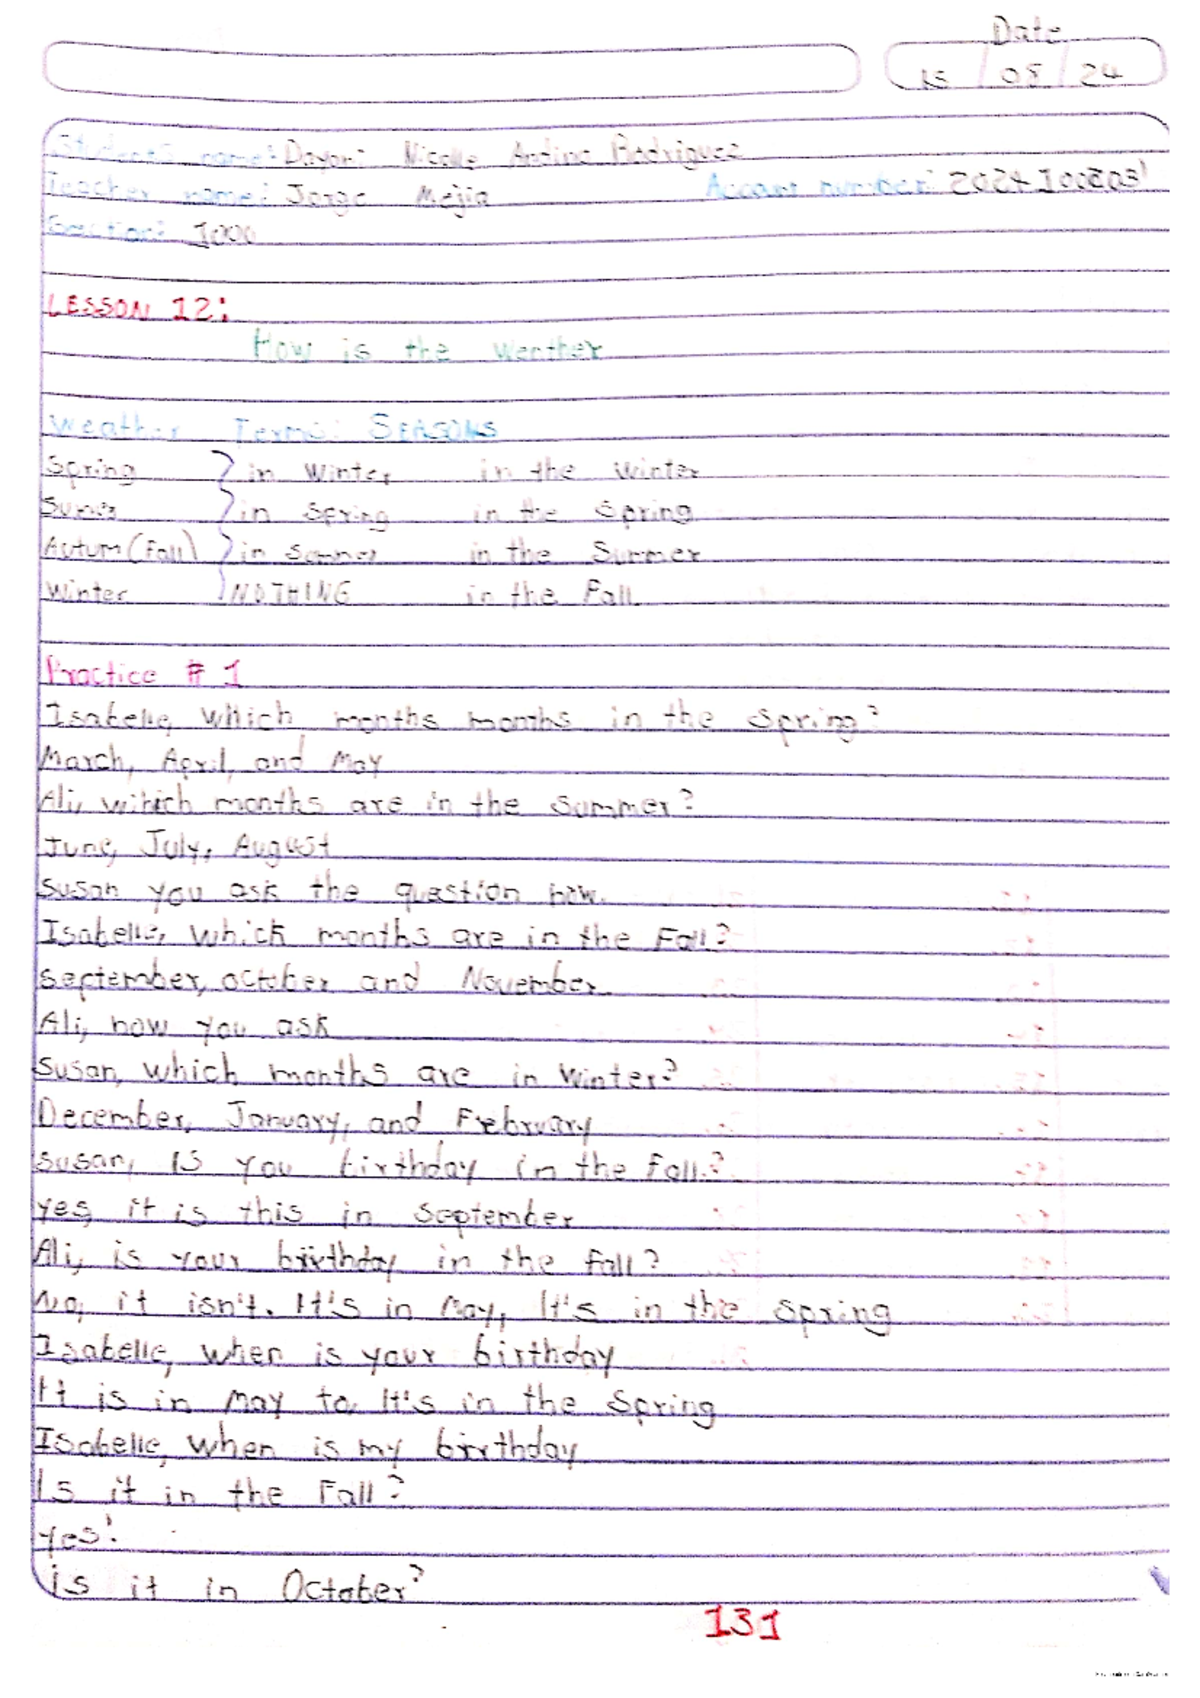 Date
15 / 08 / 24
Student's name: Dayani Nicolle Andino Rodriguez
Teacher name: Jorge Mejia Account number: 20241008031
Section: 1000
LESSON 12:
How is the werther
Weather Terms: SEASONS
Spring } in Winter in the Winter
Sumer } in spring in the spring
Autum (Fall) } in sommer in the Summer
Winter NOTHING in the Fall
Practice # 1
Isabelle, which months months in the spring?
March, April, and May
Ali, wihich months are in the summer?
June, July, August
Susan you ask the question now.
Isabelle, which months are in the Fall?
September, october and November.
Ali, now you ask
Susan, which months are in Winter?
December, January, and Frebruary
susan, IS you birthday in the Fall.?
yes, it is this in september
Ali, is your birthday in the fall?
No, it isn't. It's in May, It's in the spring
Isabelle, when is your birthday
It is in may to. It's in the Spring
Isabelle, when is my birthday
Is it in the Fall?
Yes!
is it in October?
131